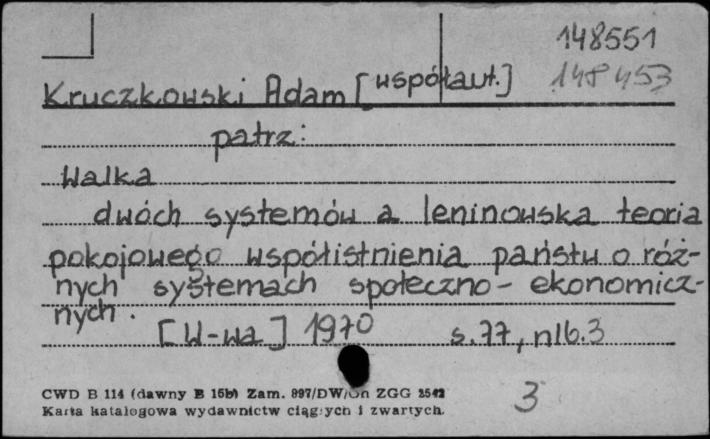 148551
148453
Kruczkowski Adam [współaut.]
patrz:
Walka
dwóch systemów a leninowska teoria
pokojowego współistnienia państw o róż-
nych systemach społeczno-ekonomicz-
nych.
[W-wa] 1970 s.77, nlb.3
3
CWD B 114 (dawny B 15b) Zam. 897/DW/Gn ZGG 2542
Karta katalogowa wydawnictw ciągłych i zwartych.